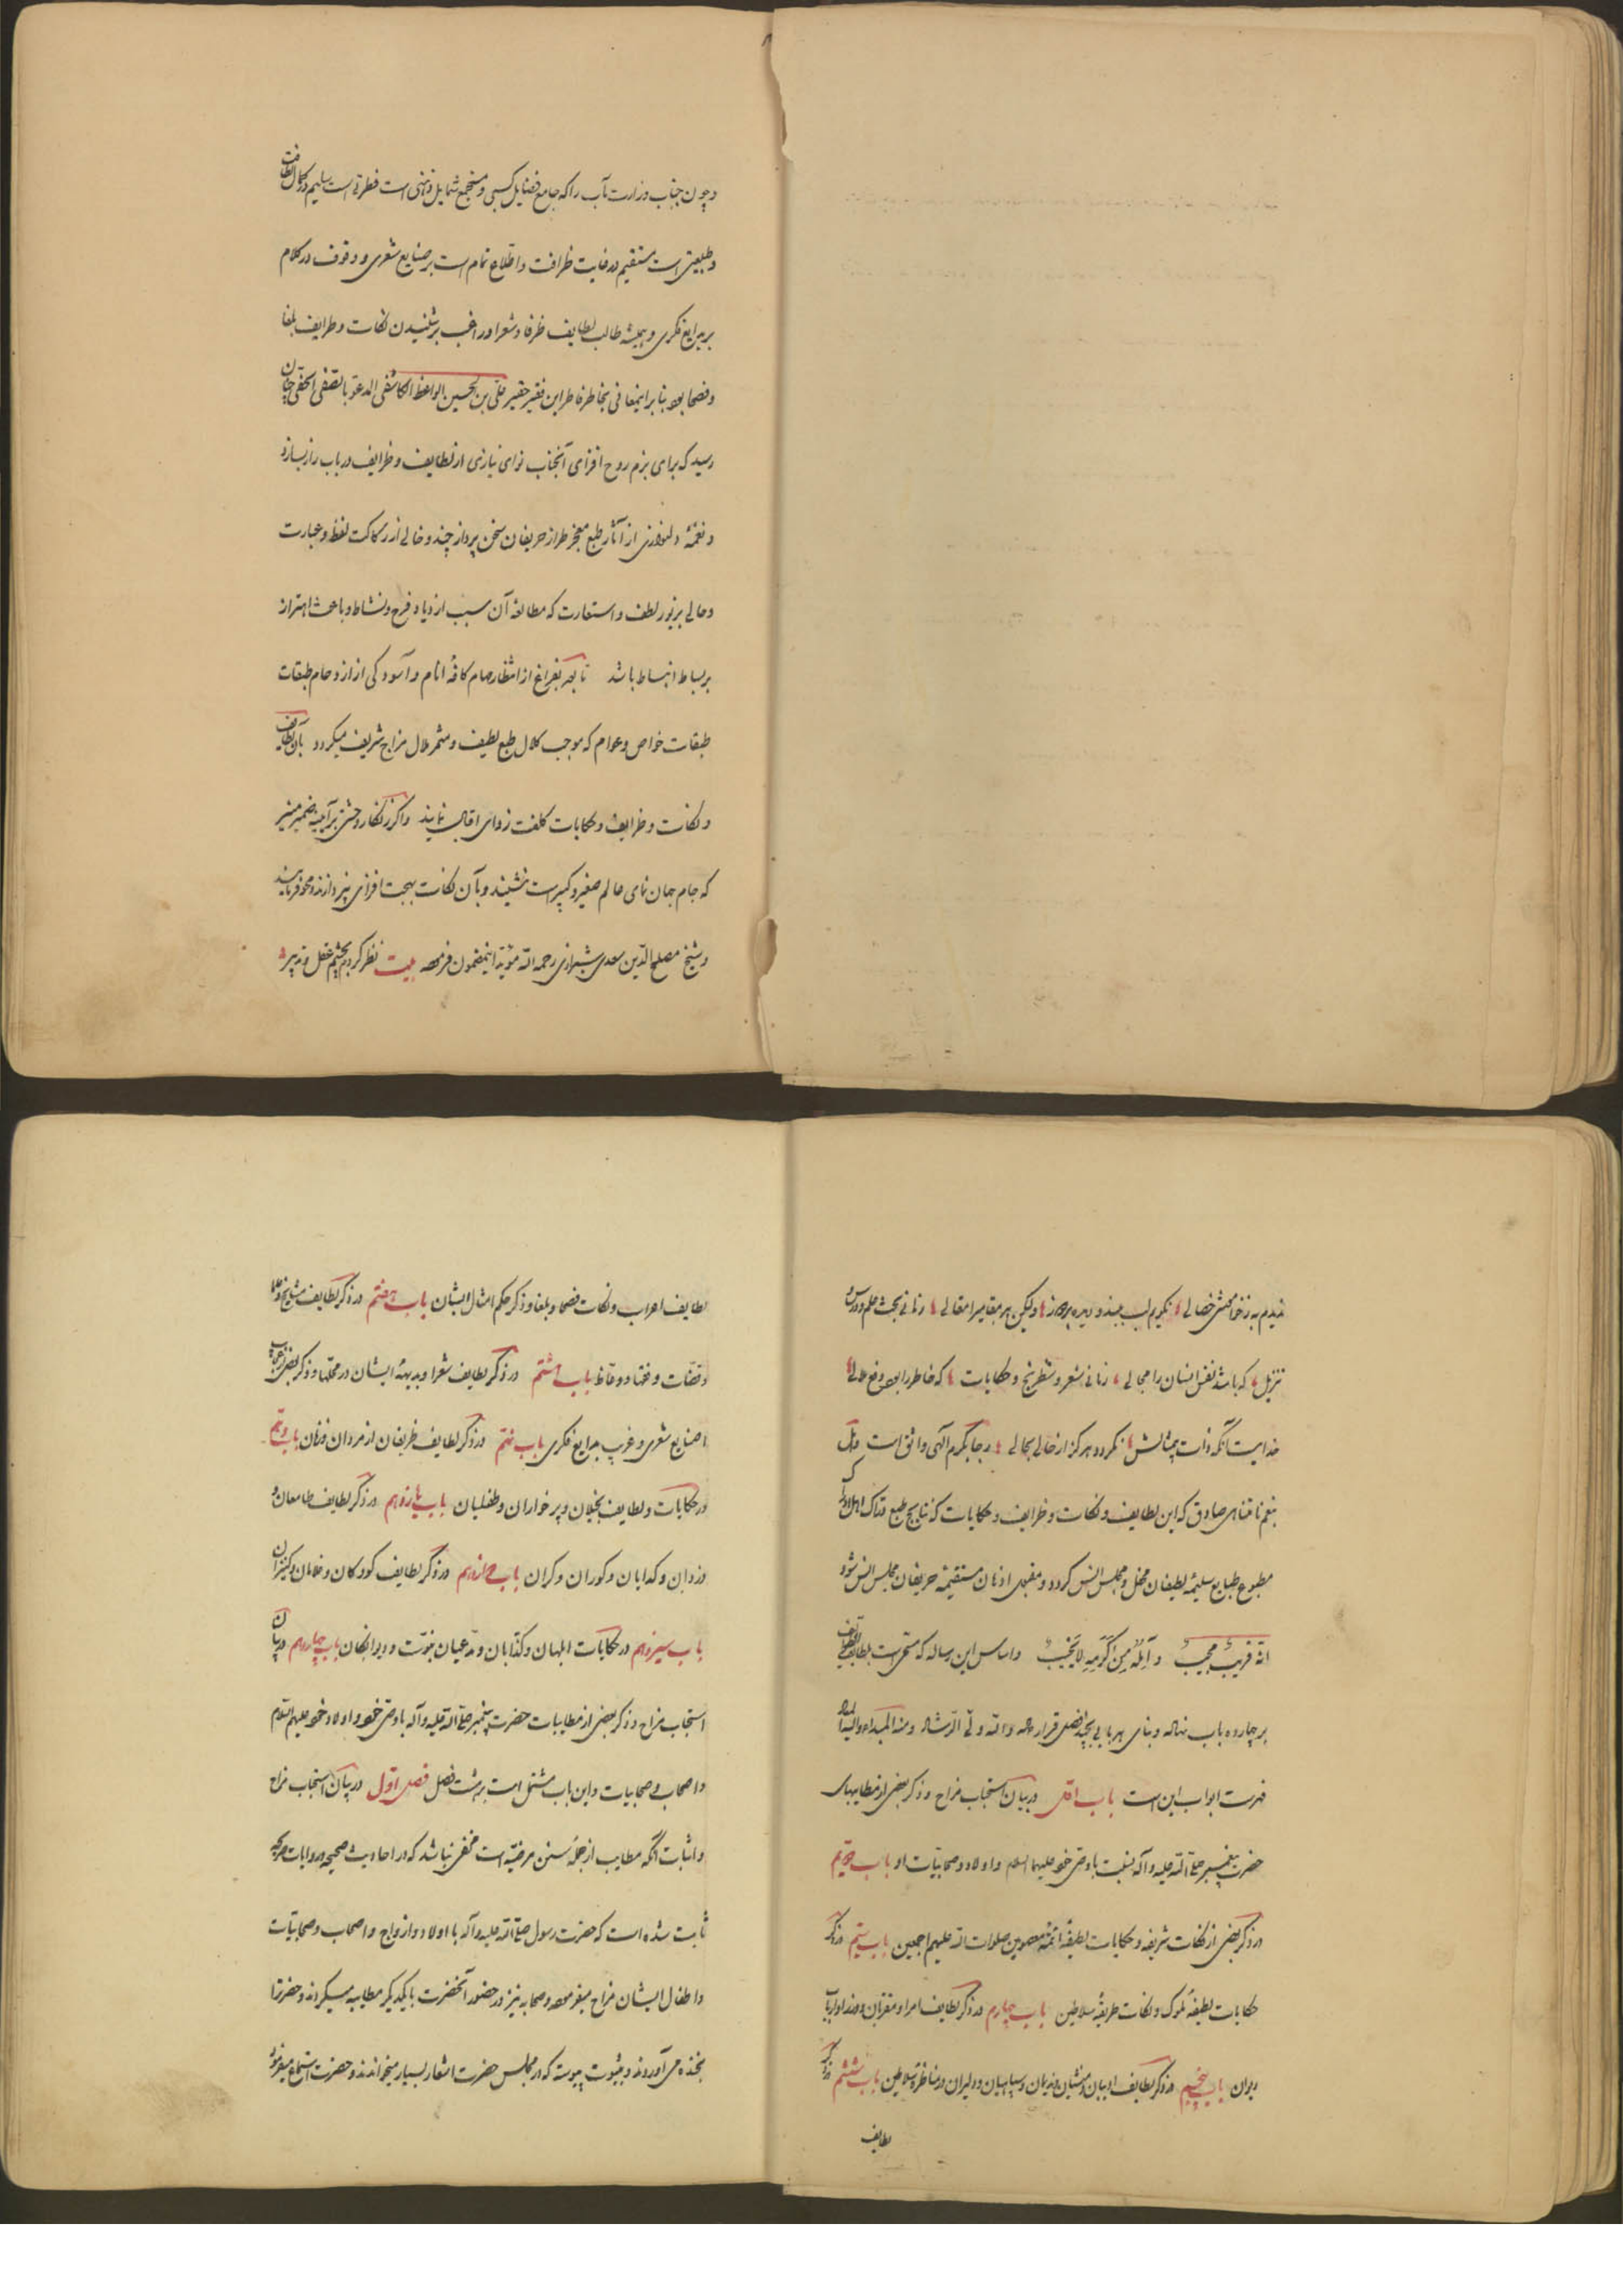 و چون جناب وزارت مآب را که جامع فضایل کسبی و مستجمع شمایل ذهنی است فطرتی است سلیم در کمال لطافت
و طبیعتی است مستقیم در غایت ظرافت و اطلاع تمام است بر صنایع شعری و وقوف در کلام
بر بدایع فکری و همیشه طالب لطایف ظرفا و شعرا و راغب بر شنیدن نکات و طرایف بلغا
و فصحا بود بنا بر اینمعانی بخاطر فاطر این فقیر حقیر علی بن الحسین الواعظ الکاشفی المدعو بالصفی الحفی چنان
رسید که برای بزم روح افزای آنجناب نوای نیازی از لطایف و ظرایف در باب راز بسازد
و نغمهٔ دلنوازی از آثار طبع معجز طراز حریفان سخن پرداز چند و خالی از رکاکت لفظ و عبارت
و حالی بزیور لطف و استعارت که مطالعه آن سبب ازدیاد فرح و نشاط و باعث اهتزاز
بر بساط انبساط باشد تا بعد بفراغ از انتظار مهام کافهٔ انام و آسودگی از ازدحام طبقات
طبقات خواص و عوام که موجب کلال طبع لطیف و مثمر ملال مزاج شریف میگردد بآن لطایف
و نکات و ظرایف و حکایات کلفت زدای اقبال نمایند و اگر زنگار وحشتی بر آیینه ضمیر منیر
که جام جهان نمای عالم صغیر و کبیر است نشیند و بآن نکات بهجت افزای بپردازند و محو فرمایند
و شیخ مصلح الدین سعدی شیرازی رحمه الله مؤید اینمضمون فرموده بیت نظر کردم بچشم عقل و تدبیر
ندیدم به ز خاموشی خصالی نگویم لب ببند و دیده بردوز ولیکن هر مقامی را مقالی زمانی بحث علم و درس و
تنزیل که باشد نفس انسان را مجالی زمانی شعر و شطرنج و حکایات که خاطر را بود دفع ملالی
خدایست آنکه ذات بیمثالش نگردد هرگز از حالی بحالی رجا بکرم الهی واثق است و امل
بنعم نامتناهی صادق که این لطایف و نکات و ظرایف و حکایات که نتایج طبع
مطبوع طبایع سلیمهٔ لطیفان محفل و مجلس انس گردد و مقبول اذهان مستقیمهٔ حریفان مجلس انس شود
انه قریب مجیب و آمله من کرمه لا یخیب و اساس این رساله که مسمی است بلطایف الطوایف
بر چهارده باب نهاده و بنای هر بابی بچند فصل قرار داده والله ولی الرشاد و منه المبداء و الیه المعاد
فهرست ابواب این است باب اول در بیان استحباب مزاح و ذکر بعضی از مطایبهای
حضرت پیغمبر صلی الله علیه و آله بنسبت با وصی خود علیهما السلام و اولاد و صحابیات او باب دویم
در ذکر بعضی از نکات شریفه و حکایات لطیفهٔ ائمهٔ معصومین صلوات الله علیهم اجمعین باب سیم در ذکر
حکایات لطیفهٔ ملوک و نکات طریفهٔ سلاطین باب چهارم در ذکر لطایف امرا و مقربان و وزرا و ارباب
دیوان باب پنجم در ذکر لطایف ادیبان و منشیان و ندیمان و سپاهیان و دلیران و مناظرهٔ سلاطین باب ششم در ذکر
لطایف
لطایف اعراب و نکات فصحا و بلغا و ذکر حکم امثال ایشان باب هفتم در ذکر لطایف مشایخ و علما
و قضات و فقها و وعاظ باب هشتم در ذکر لطایف شعرا و بدیهه ایشان در محلها و ذکر بعضی از عجایب
صنایع شعری و غریب بدایع فکری باب نهم در ذکر لطایف ظریفان از مردان و زنان باب دهم
در حکایات و لطایف بخیلان و پرخواران و طفیلیان باب یازدهم در ذکر لطایف طامعان و
دزدان و گدایان و کوران و کران باب دوازدهم در ذکر لطایف کودکان و غلامان و کنیزان
باب سیزدهم در حکایات ابلهان و کذابان و مدعیان نبوت و دیوانگان باب چهاردهم در بیان
استحباب مزاح و ذکر بعضی از مطایبات حضرت پیغمبر صلی الله علیه و آله با وصی خود و اولاد خود علیهم السلام
و اصحاب و صحابیات و این باب مشتمل است بر هشت فصل فصل اول در بیان استحباب مزاح
و اثبات آنکه مطایب از جملهٔ سنن مرضیه است مخفی نباشد که در احادیث صحیحه و روایات صریحه
ثابت شده است که حضرت رسول صلی الله علیه و آله با اولاد و ازواج و اصحاب و صحابیات
و اطفال ایشان مزاح میفرموده و صحابه نیز در حضور آنحضرت با یکدیگر مطایبه میکردند و حضرت را
بخنده می آوردند و بثبوت پیوسته که در مجلس حضرت اشعار بسیار میخواندند و حضرت استماع میفرمود